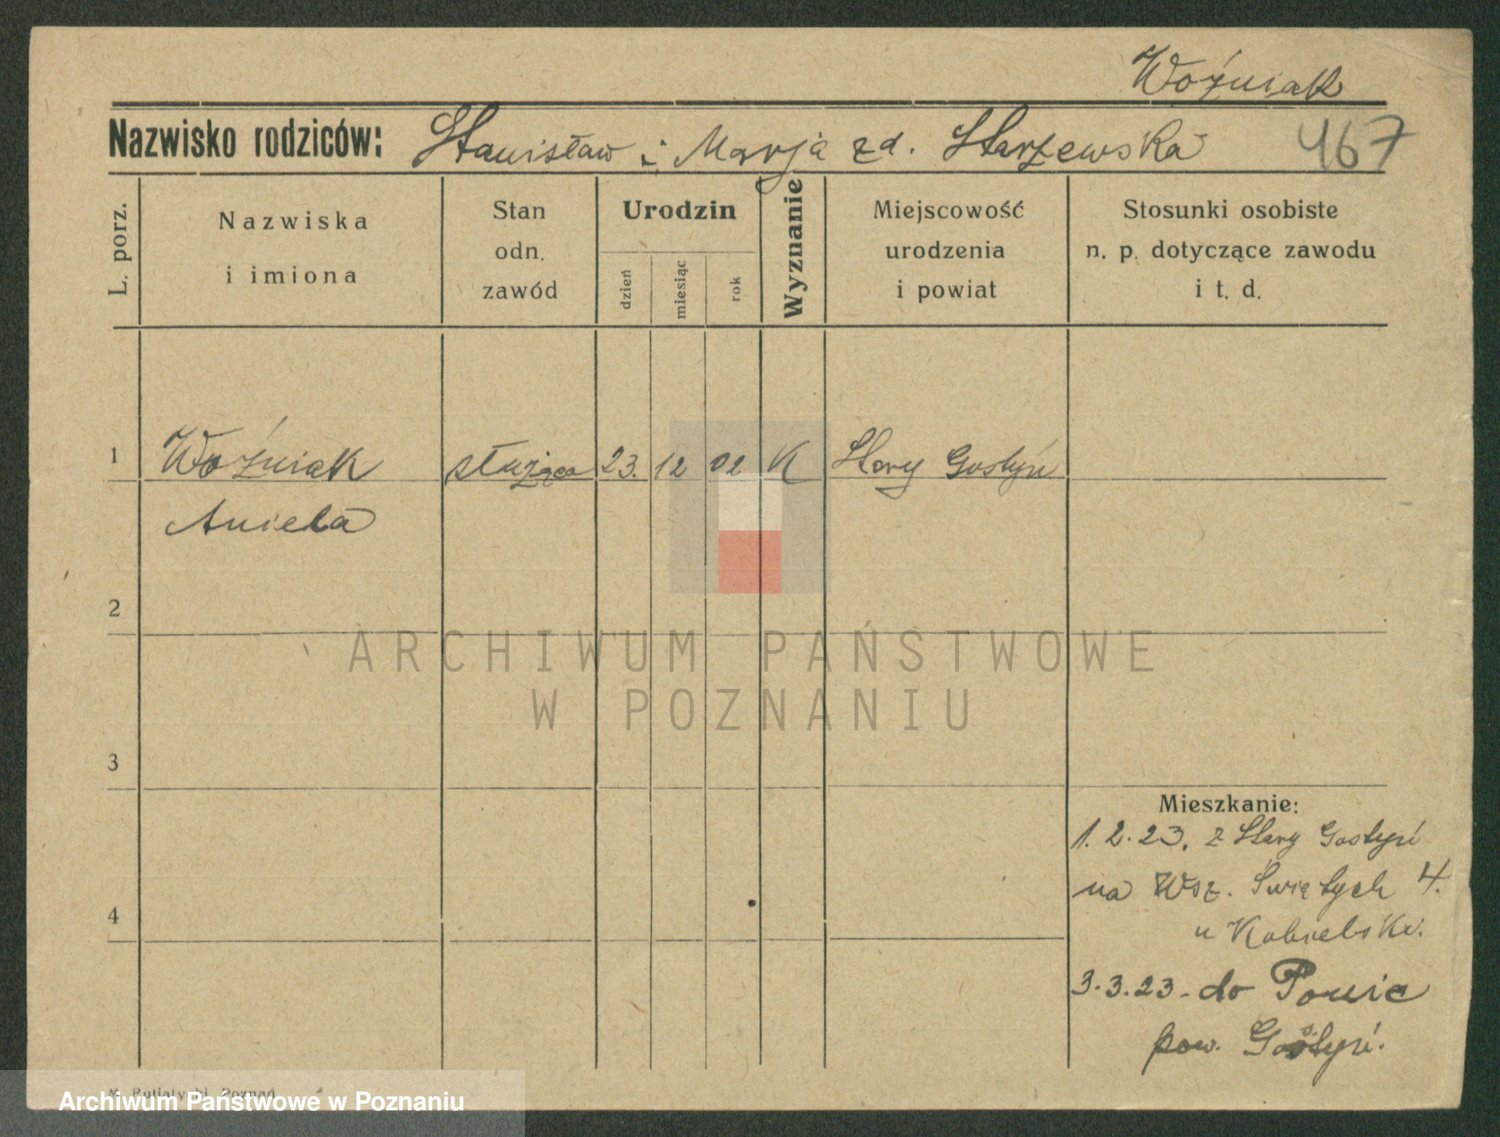 Woźniak
Nazwisko rodziców: Stanisław i Marja zd. Starzewska 467
L. porz.
Nazwiska
i imiona
Stan
odn.
zawód
Urodzin
dzień
miesiąc
rok
Wyznanie
Miejscowość
urodzenia
i powiat
Stosunki osobiste
n. p. dotyczące zawodu
i t. d.
1 Woźniak służąca 23. 12 02 K Stary Gostyń
Aniela
2
3
4
Mieszkanie:
1.2.23. z Stary Gostyń
na Wsz. Świętych 4.
u
3.3.23 - do
pow. Gostyń.
Poznań
ARCHIWUM PAŃSTWOWE
W POZNANIU
Archiwum Państwowe w Poznaniu